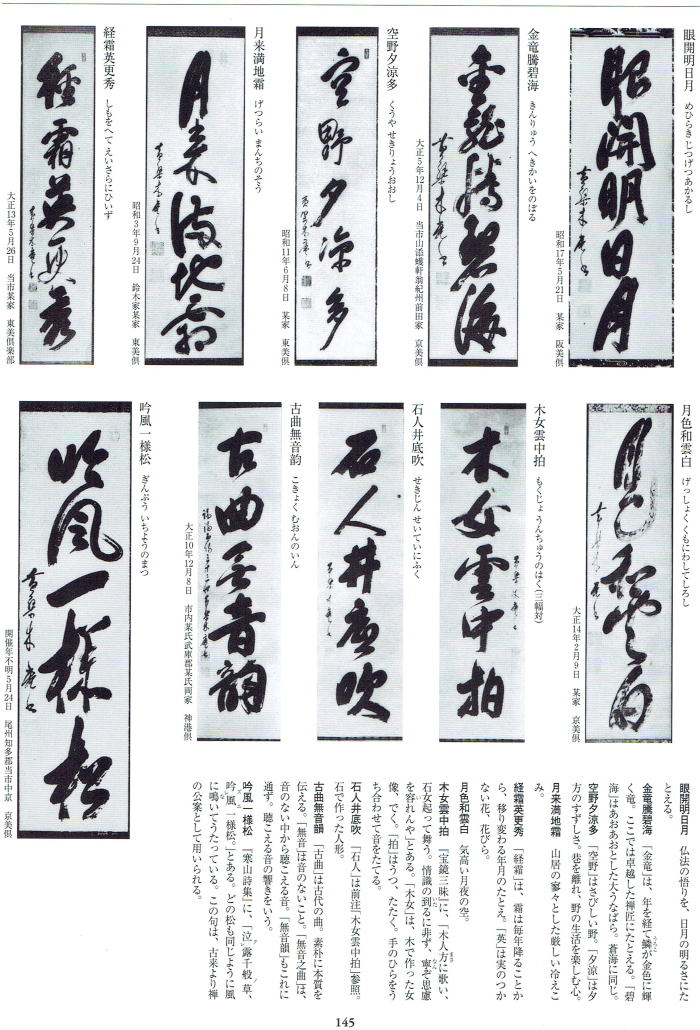 眼開明日月　めひらきじつげつあかるし
眼開明日月
昭和17年5月21日　某家　阪美倶
金竜騰碧海　きんりゅう へきかいをのぼる
金龍騰碧海
大正5年12月4日　当市山添蠖軒翁紀州前田家　京美倶
空野夕涼多　くうや せきりょうおおし
空野夕涼多
昭和11年6月8日　某家　東美倶
月来満地霜　げつらい まんちのそう
月来満地霜
昭和3年9月24日　鈴木家某家　東美倶
経霜英更秀　しもをへて えいさらにひいず
經霜英更秀
大正13年5月26日　当市某家　東美倶楽部
月色和雲白　げっしょくくもにわしてしろし
月色和雲白
大正14年2月9日　某家　京美倶
木女雲中拍　もくじょ うんちゅうのはく(三幅対)
木女雲中拍
石人井底吹　せきじん せいていにふく
石人井底吹
古曲無音韵　こきょく むおんのいん
古曲無音韵
大正10年12月8日　市内某氏武庫郡某氏両家　神港倶
吟風一様松　ぎんぷう いちようのまつ
吟風一様松
開催年不明5月24日　尾州知多郡当市中京　京美倶
眼開明日月　仏法の悟りを、日月の明るさにた
とえる。
金竜騰碧海　「金竜」は、年を経て鱗が金色に輝
く竜。ここでは卓越した禅匠にたとえる。「碧
海」はあおあおとした大うなばら。蒼海に同じ。
空野夕涼多　「空野」はさびしい野。「夕涼」は夕
方のすずしさ。巷を離れ、野の生活を楽しむ心。
月来満地霜　山居の寥々とした厳しい冷えこ
み。
経霜英更秀　「経霜」は、霜は毎年降ることか
ら、移り変わる年月のたとえ。「英」は実のつか
ない花、花びら。
月色和雲白　気高い月夜の空。
木女雲中拍　『宝鏡三昧』に、「木人方に歌い、
石女起って舞う。情識の到るに非ず、寧ぞ思慮
を容れんや」とある。「木女」は、木で作った女
像、でく。「拍」はうつ、たたく。手のひらをう
ち合わせて音をたてる。
石人井底吹　「石人」は前注『木女雲中拍』参照。
石で作った人形。
古曲無音韵　「古曲」は古代の曲。素朴に本質を
伝える。「無音」は音のないこと。「無音之曲」は、
音のない中から聴こえる音。「無音韵」もこれに
通ず。聴こえる音の響きをいう。
吟風一様松　『寒山詩集』に、「泣露千般草、
吟風一様松。」とある。どの松も同じように風
に鳴いてうたっている。この句は、古来より禅
の公案として用いられる。
145